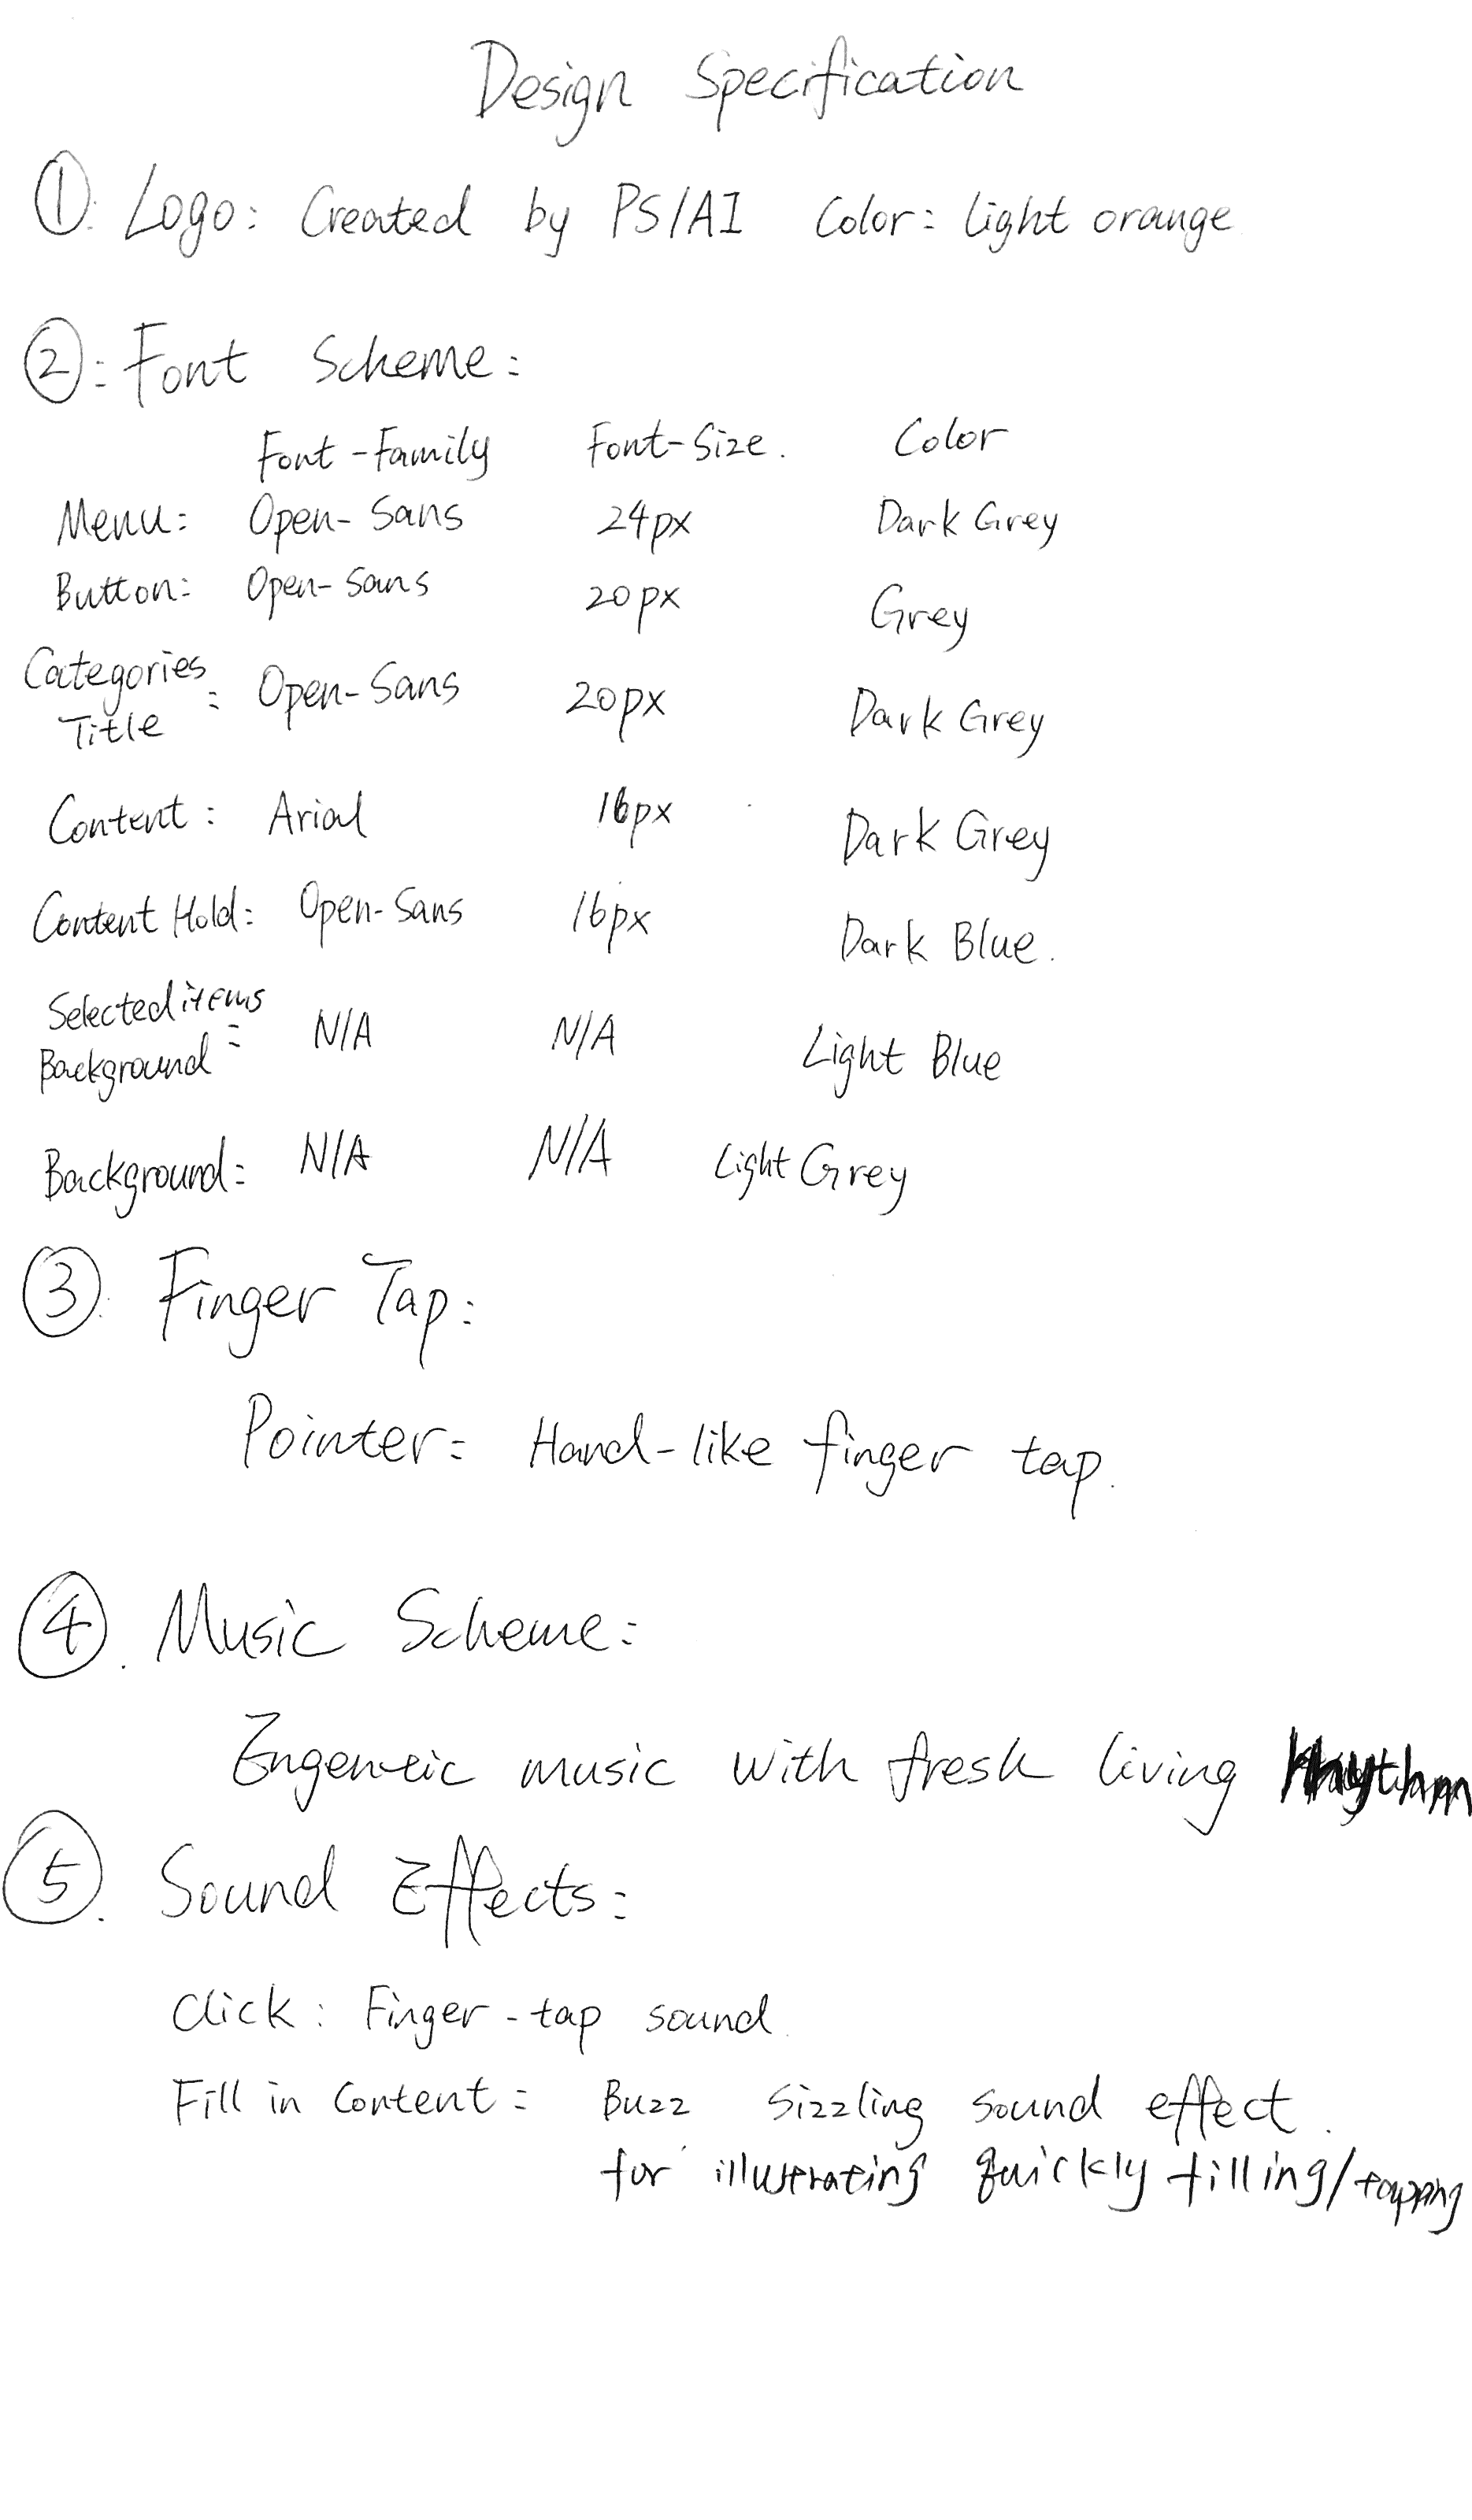 Design Specification
①. Logo: Created by PS/AI Color: light orange
②: Font Scheme:
Font-Family Font-Size. Color
Menu: Open-Sans 24px Dark Grey
Button: Open-Sans 20px Grey
Categories
Title : Open-Sans 20px Dark Grey
Content: Arial 16px Dark Grey
Content Hold: Open-Sans 16px Dark Blue.
Selected items
Background : N/A N/A Light Blue
Background: N/A N/A Light Grey
③. Finger Tap:
Pointer: Hand-like finger tap.
④. Music Scheme:
music with fresh living Rhythm
⑤. Sound Effects:
Click: Finger-tap sound.
Fill in Content: Buzz Sizzling sound effect.
for illustrating quickly filling/tapping